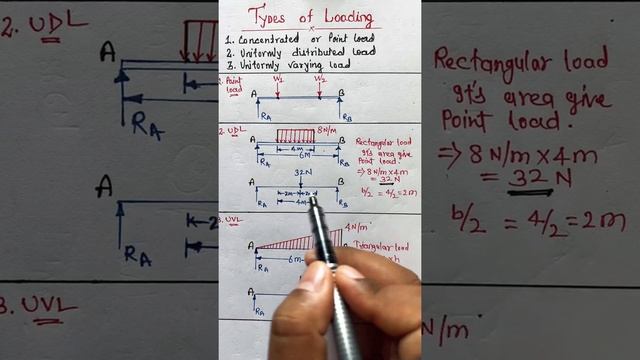 Types of Loading
1. Concentrated or Point Load
2. Uniformly distributed Load
3. Uniformly varying load
1. Point Load
W1 W2
A B
RA RB
2. UDL
8 N/m
A B
4m
6m
RA RB
Rectangular load
It's area give
Point load.
⇒ 8 N/m × 4m
= 32 N
b/2 = 4/2 = 2m
32N
A B
2m
4m
RA RB
3. UVL
4 N/m
A
Triangular load
6m
RA
A
RA
2. UDL
A
RA
A
RA
3. UVL
Rectangular load
It's area give
Point load.
⇒ 8 N/m × 4m
= 32 N
b/2 = 4/2 = 2m
N/m